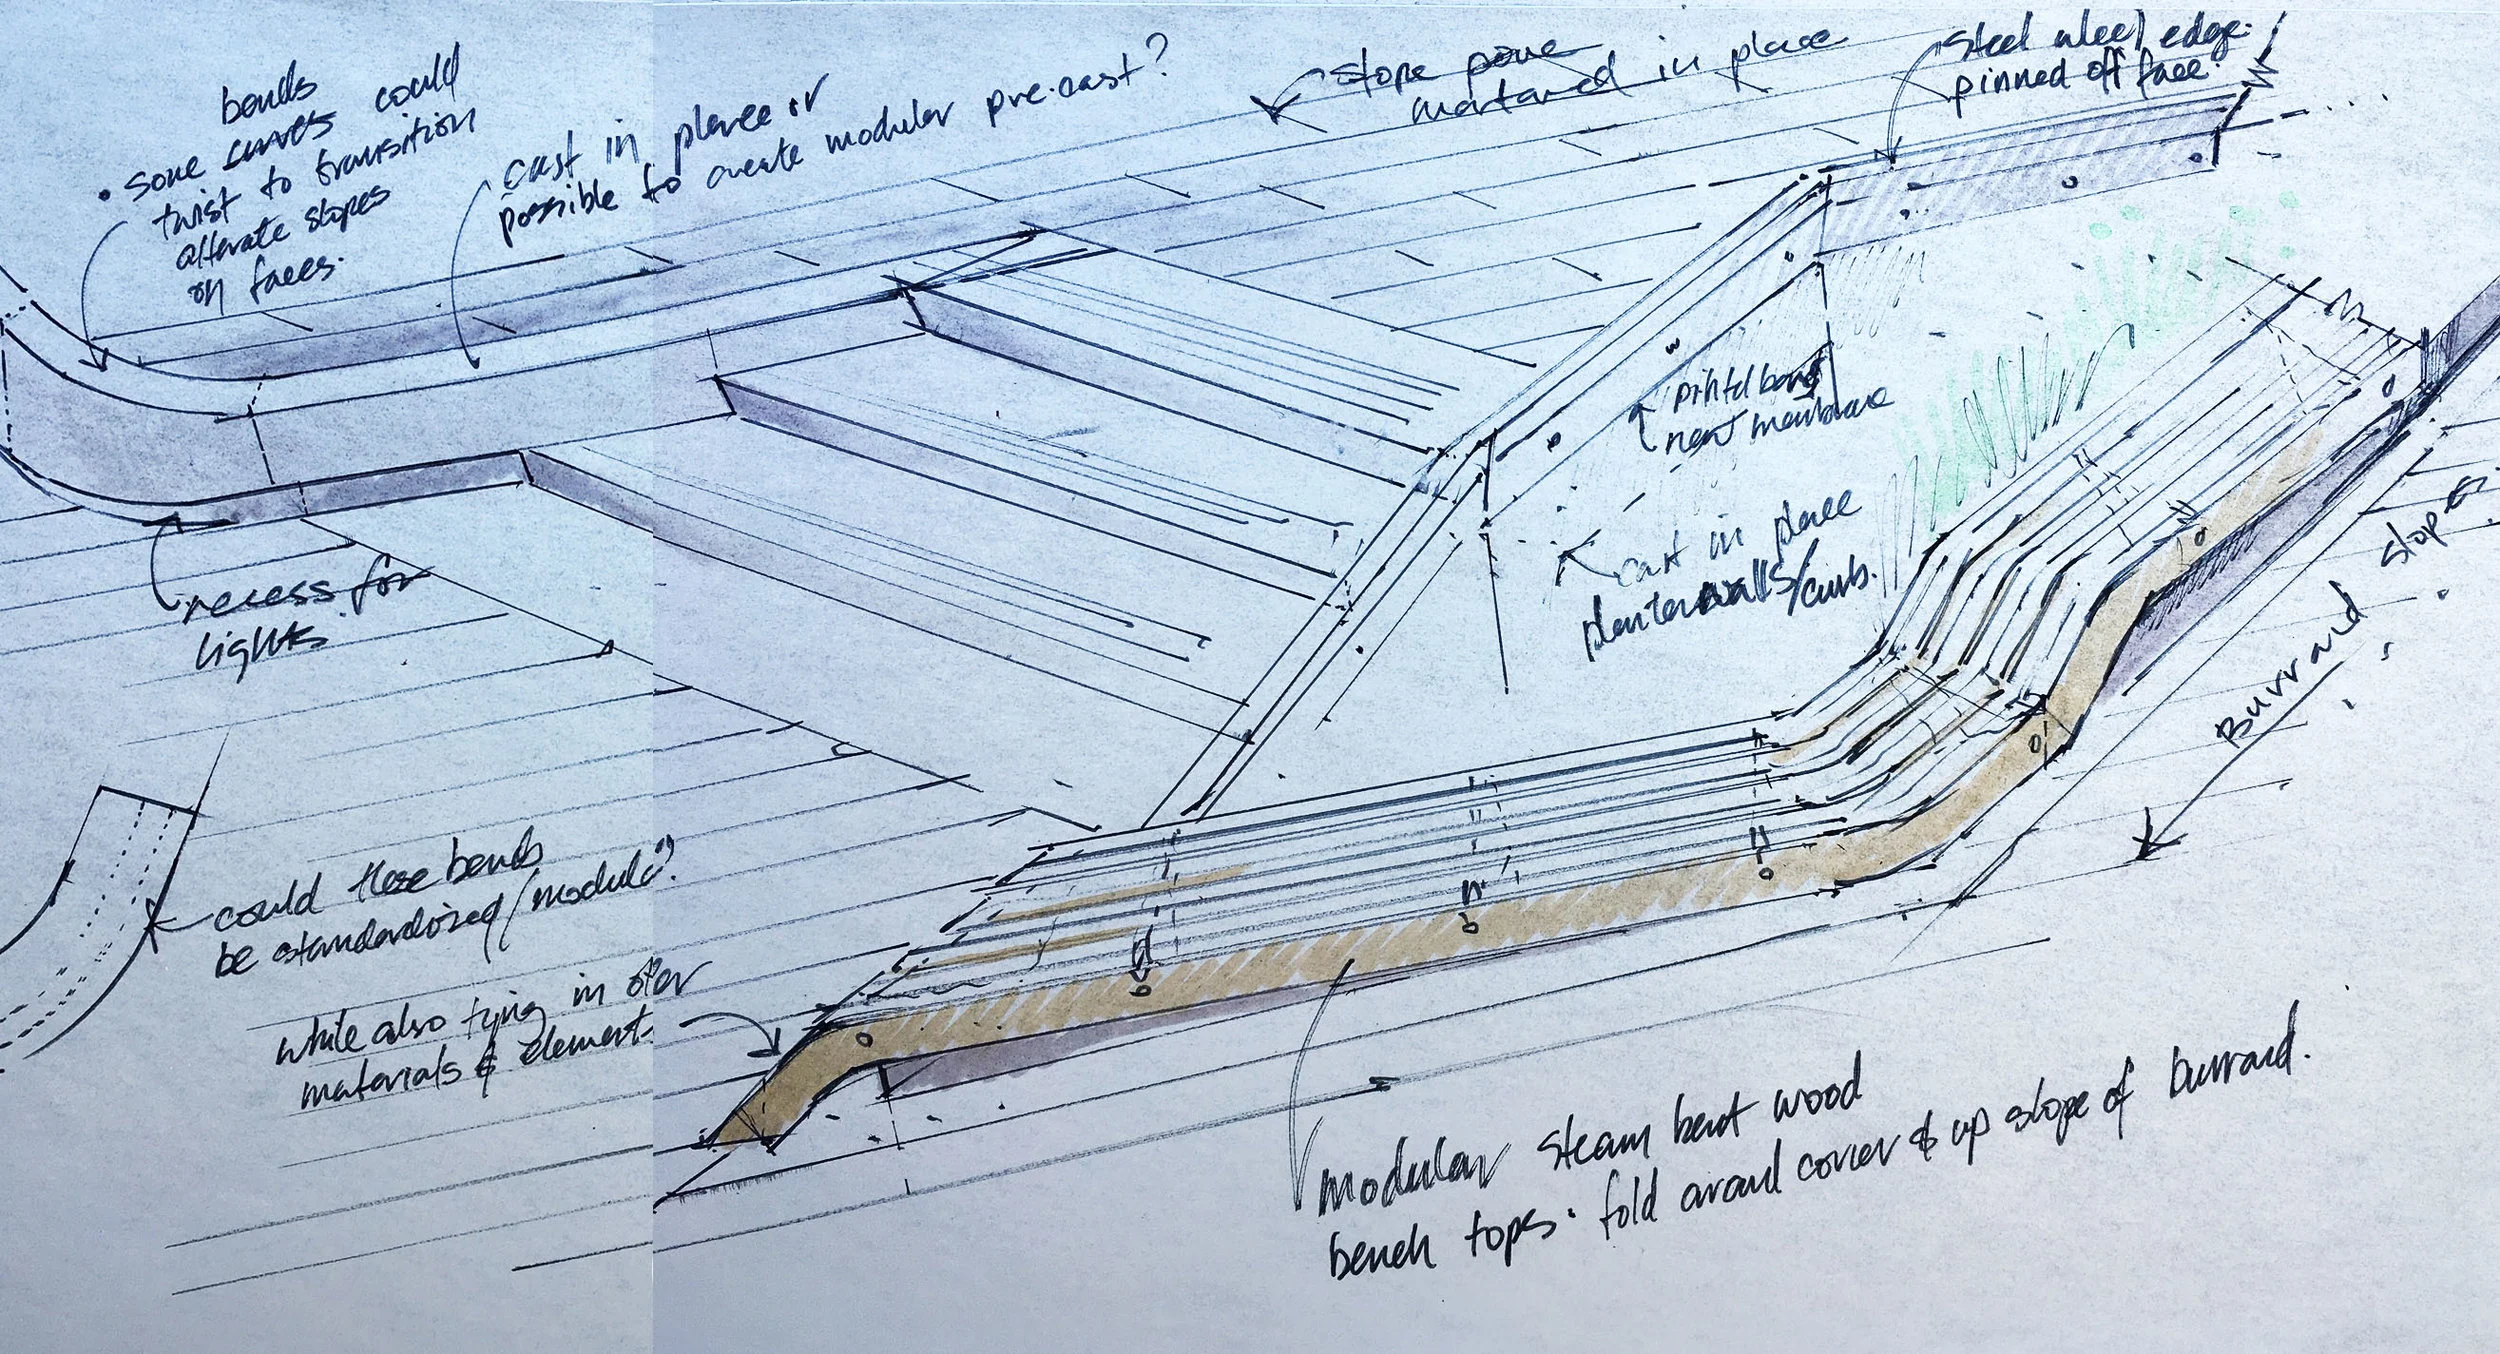 bends
• Some curves could
twist to transition
alternate slopes
on faces.
cast in place or
possible to create modular pre-cast?
stone pave
mortared in place
steel wheel edge.
pinned off face.
membrane
cast in place
planter walls/curb.
recess for
lights.
Burrard slope
could these bends
be standardized/modular?
while also tying in other
materials & elements
modular steam bent wood
bench tops. fold around corner & up slope of burrard.